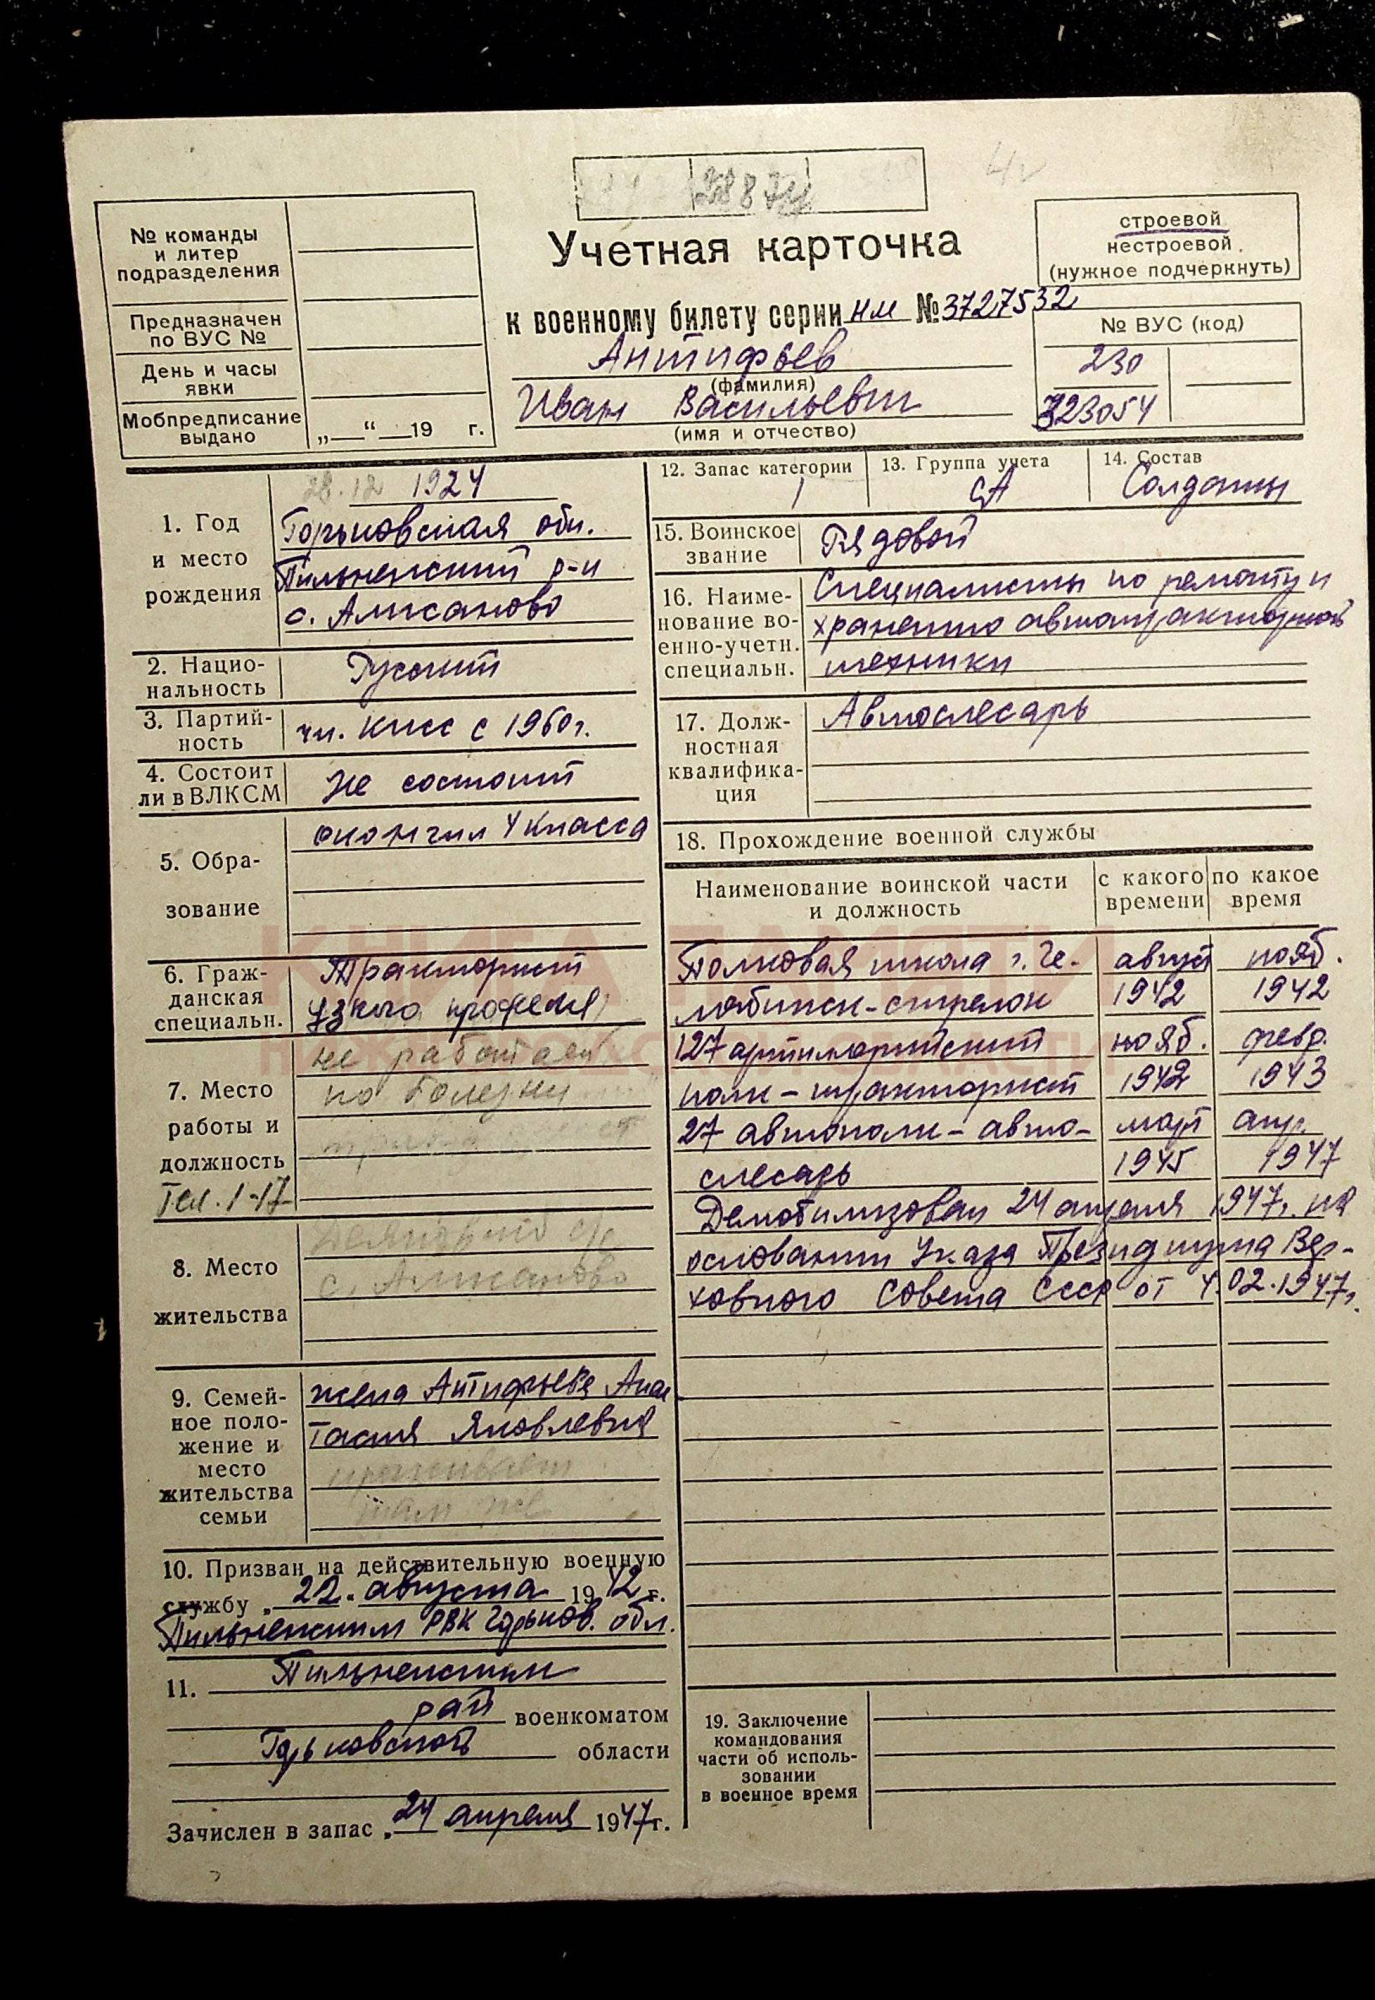 28874
4
№ команды
и литер
подразделения
Предназначен
по ВУС №
День и часы
явки
Мобпредписание
выдано
„ “ 19 г.
Учетная карточка
к военному билету серии НМ № 3727532
Антифьев
(фамилия)
Иван Васильевич
(имя и отчество)
строевой
нестроевой
(нужное подчеркнуть)
№ ВУС (код)
230
323054
1. Год
и место
рождения
28.12 1924
Горьковская обл.
Пильненский р-н
с. Алисаново
2. Нацио-
нальность
Русский
3. Партий-
ность
чл. КПСС с 1960г.
4. Состоит
ли в ВЛКСМ
Не состоит
5. Обра-
зование
окончил 4 класса
6. Граж-
данская
специальн.
Тракторист
узкого профеля
7. Место
работы и
должность
Тел. 1-17
не работает
по болезни
8. Место
жительства
с. Алисаново
9. Семей-
ное поло-
жение и
место
жительства
семьи
жена Антифьева Анас
тасия Яковлевна
проживает
там же
10. Призван на действительную военную
службу „22“ августа 1942 г.
Пильненским РВК Горьков. обл.
11. Пильненским
рай военкоматом
Горьковской области
Зачислен в запас „24 апреля 1947г.
12. Запас категории
1
13. Группа учета
СА
14. Состав
Солдаты
15. Воинское
звание
Рядовой
16. Наиме-
нование во-
енно-учетн.
специальн.
Специалисты по ремонту и
хранению автотракторной
техники
17. Долж-
ностная
квалифика-
ция
Автослесарь
18. Прохождение военной службы
Наименование воинской части
и должность
с какого
времени
по какое
время
Полковая школа г. Че-
лябинск-стрелок
август 1942
нояб. 1942
127 артиллерийский
полк - тракторист
нояб. 1942
февр. 1943
27 автополк - авто-
слесарь
март 1945
апр. 1947
Демобилизован 24 апреля 1947г. на
основании Указа Президиума Вер-
ховного Совета СССР от 4.02.1947г.
19. Заключение
командования
части об исполь-
зовании
в военное время
КНИГА ПАМЯТИ
НИЖЕГОРОДСКОЙ ОБЛАСТИ